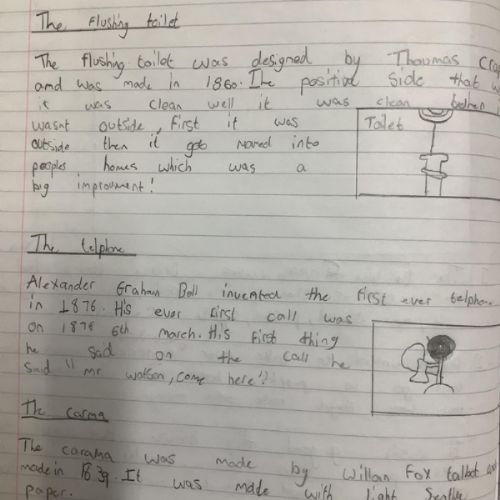 The Flushing toilet
The flushing toilet was designed by Thoumas Crap
and was made in 1860. The positive side that w
it was clean well it was clean
wasnt outside, First it was
outside then it got moved into
peoples homes which was a
big improument!
Toilet
The telphone
Alexander Graham Bell invented the first ever telphon
in 1876. His ever first call was
on 1876 6th march. His first thing
he sad on the call he
said "mr watson, come here"?
The carma
The carama was made by Willam Fox talbot
made in 1839. It was made with light
paper.